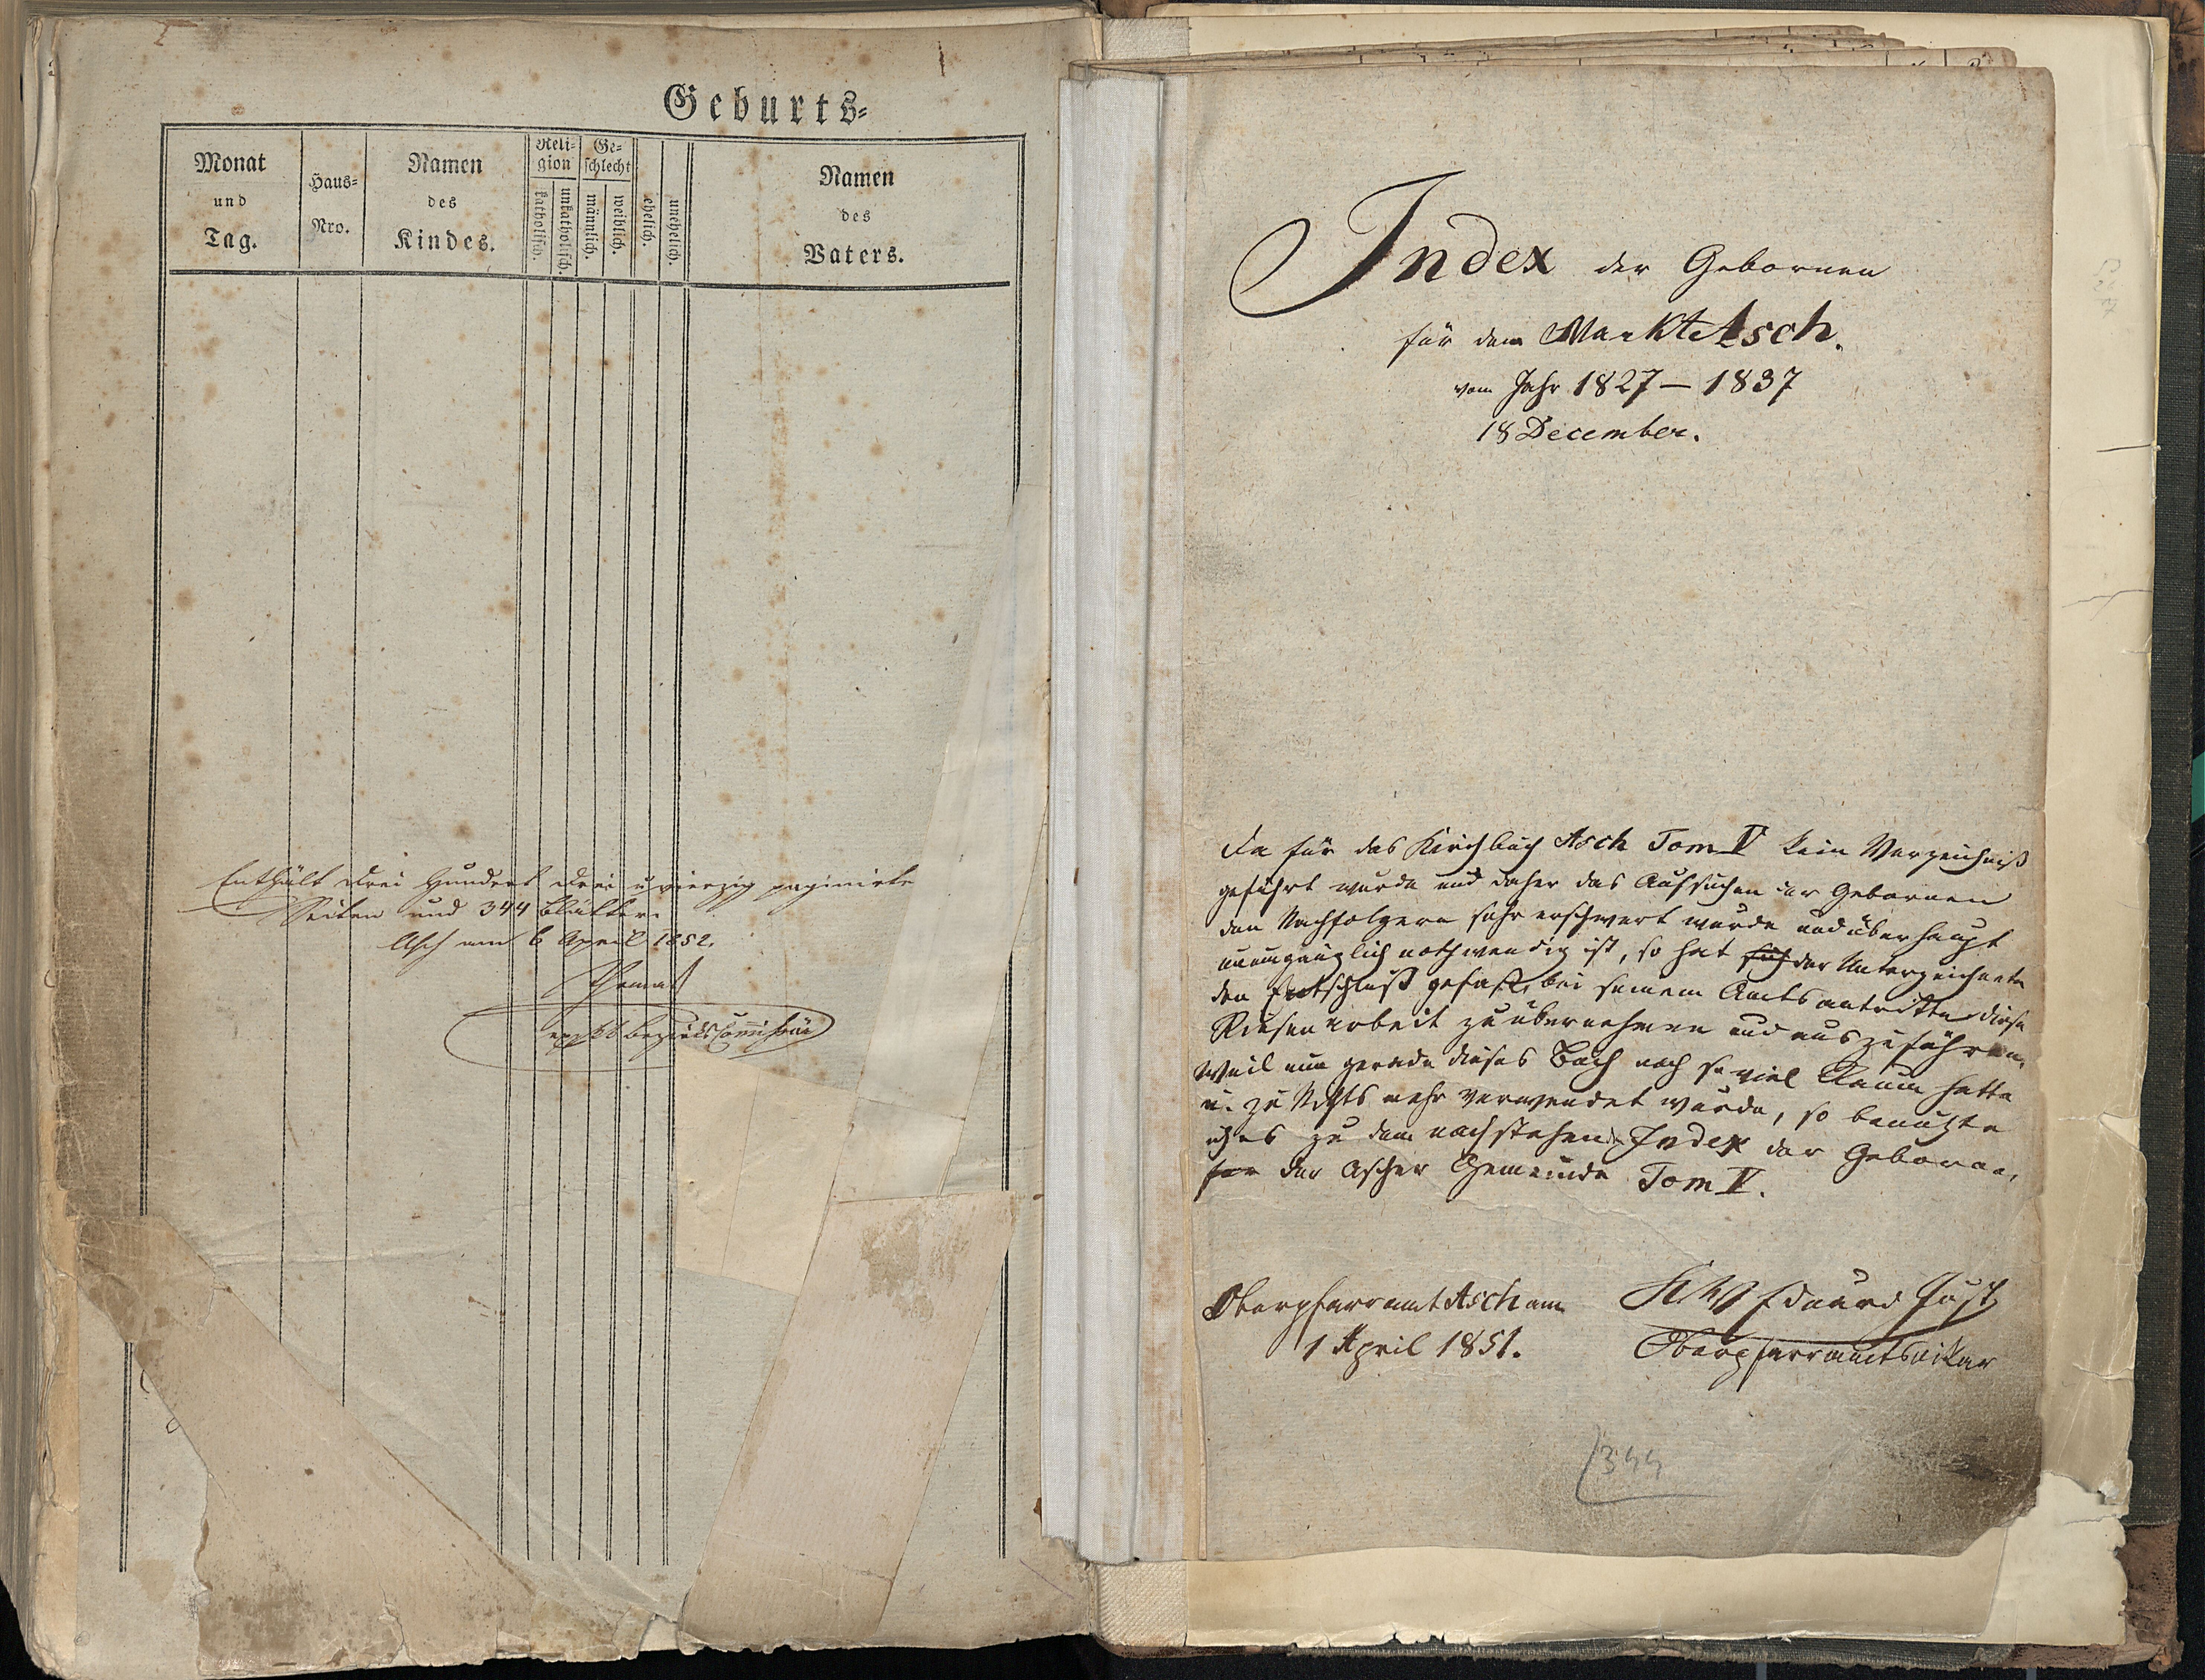 Geburts-
Monat und Tag.
Haus-Nro.
Namen des Kindes.
Religion
katholisch.
unkatholisch.
Geschlecht
männlich.
weiblich.
ehelich.
unehelich.
Namen des Vaters.
Enthält drei Hundert drei u vierzig paginirte
Seiten und 344 Blätter.
Asch am 6 April 1852.
Bezirks Commissär
Index der Gebornen
für den Markt Asch.
vom Jahr 1827 – 1837
18 December.
Da für das Kirchbuch Asch Tom V kein Verzeichniß
geführt wurde und daher das Aufsuchen der Gebornen
den Nachfolgern sehr erschwert wurde und überhaupt
unumgänglich nothwendig ist, so hat sich der Unterzeichnete
den Entschluß gefaßt, bei seinem Amtsantritte diese
Riesenarbeit zu übernehmen und auszuführen,
Weil nun gerade dieses Buch noch so viel Raum hatte
u. zu Nichts mehr verwendet wurde, so benützte
ich es zu dem nachstehend Index der Gebornen,
der Ascher Gemeinde Tom V.
Oberpfarramt Asch am
1 April 1851.
Eduard Just
Oberpfarramtsvikar
344